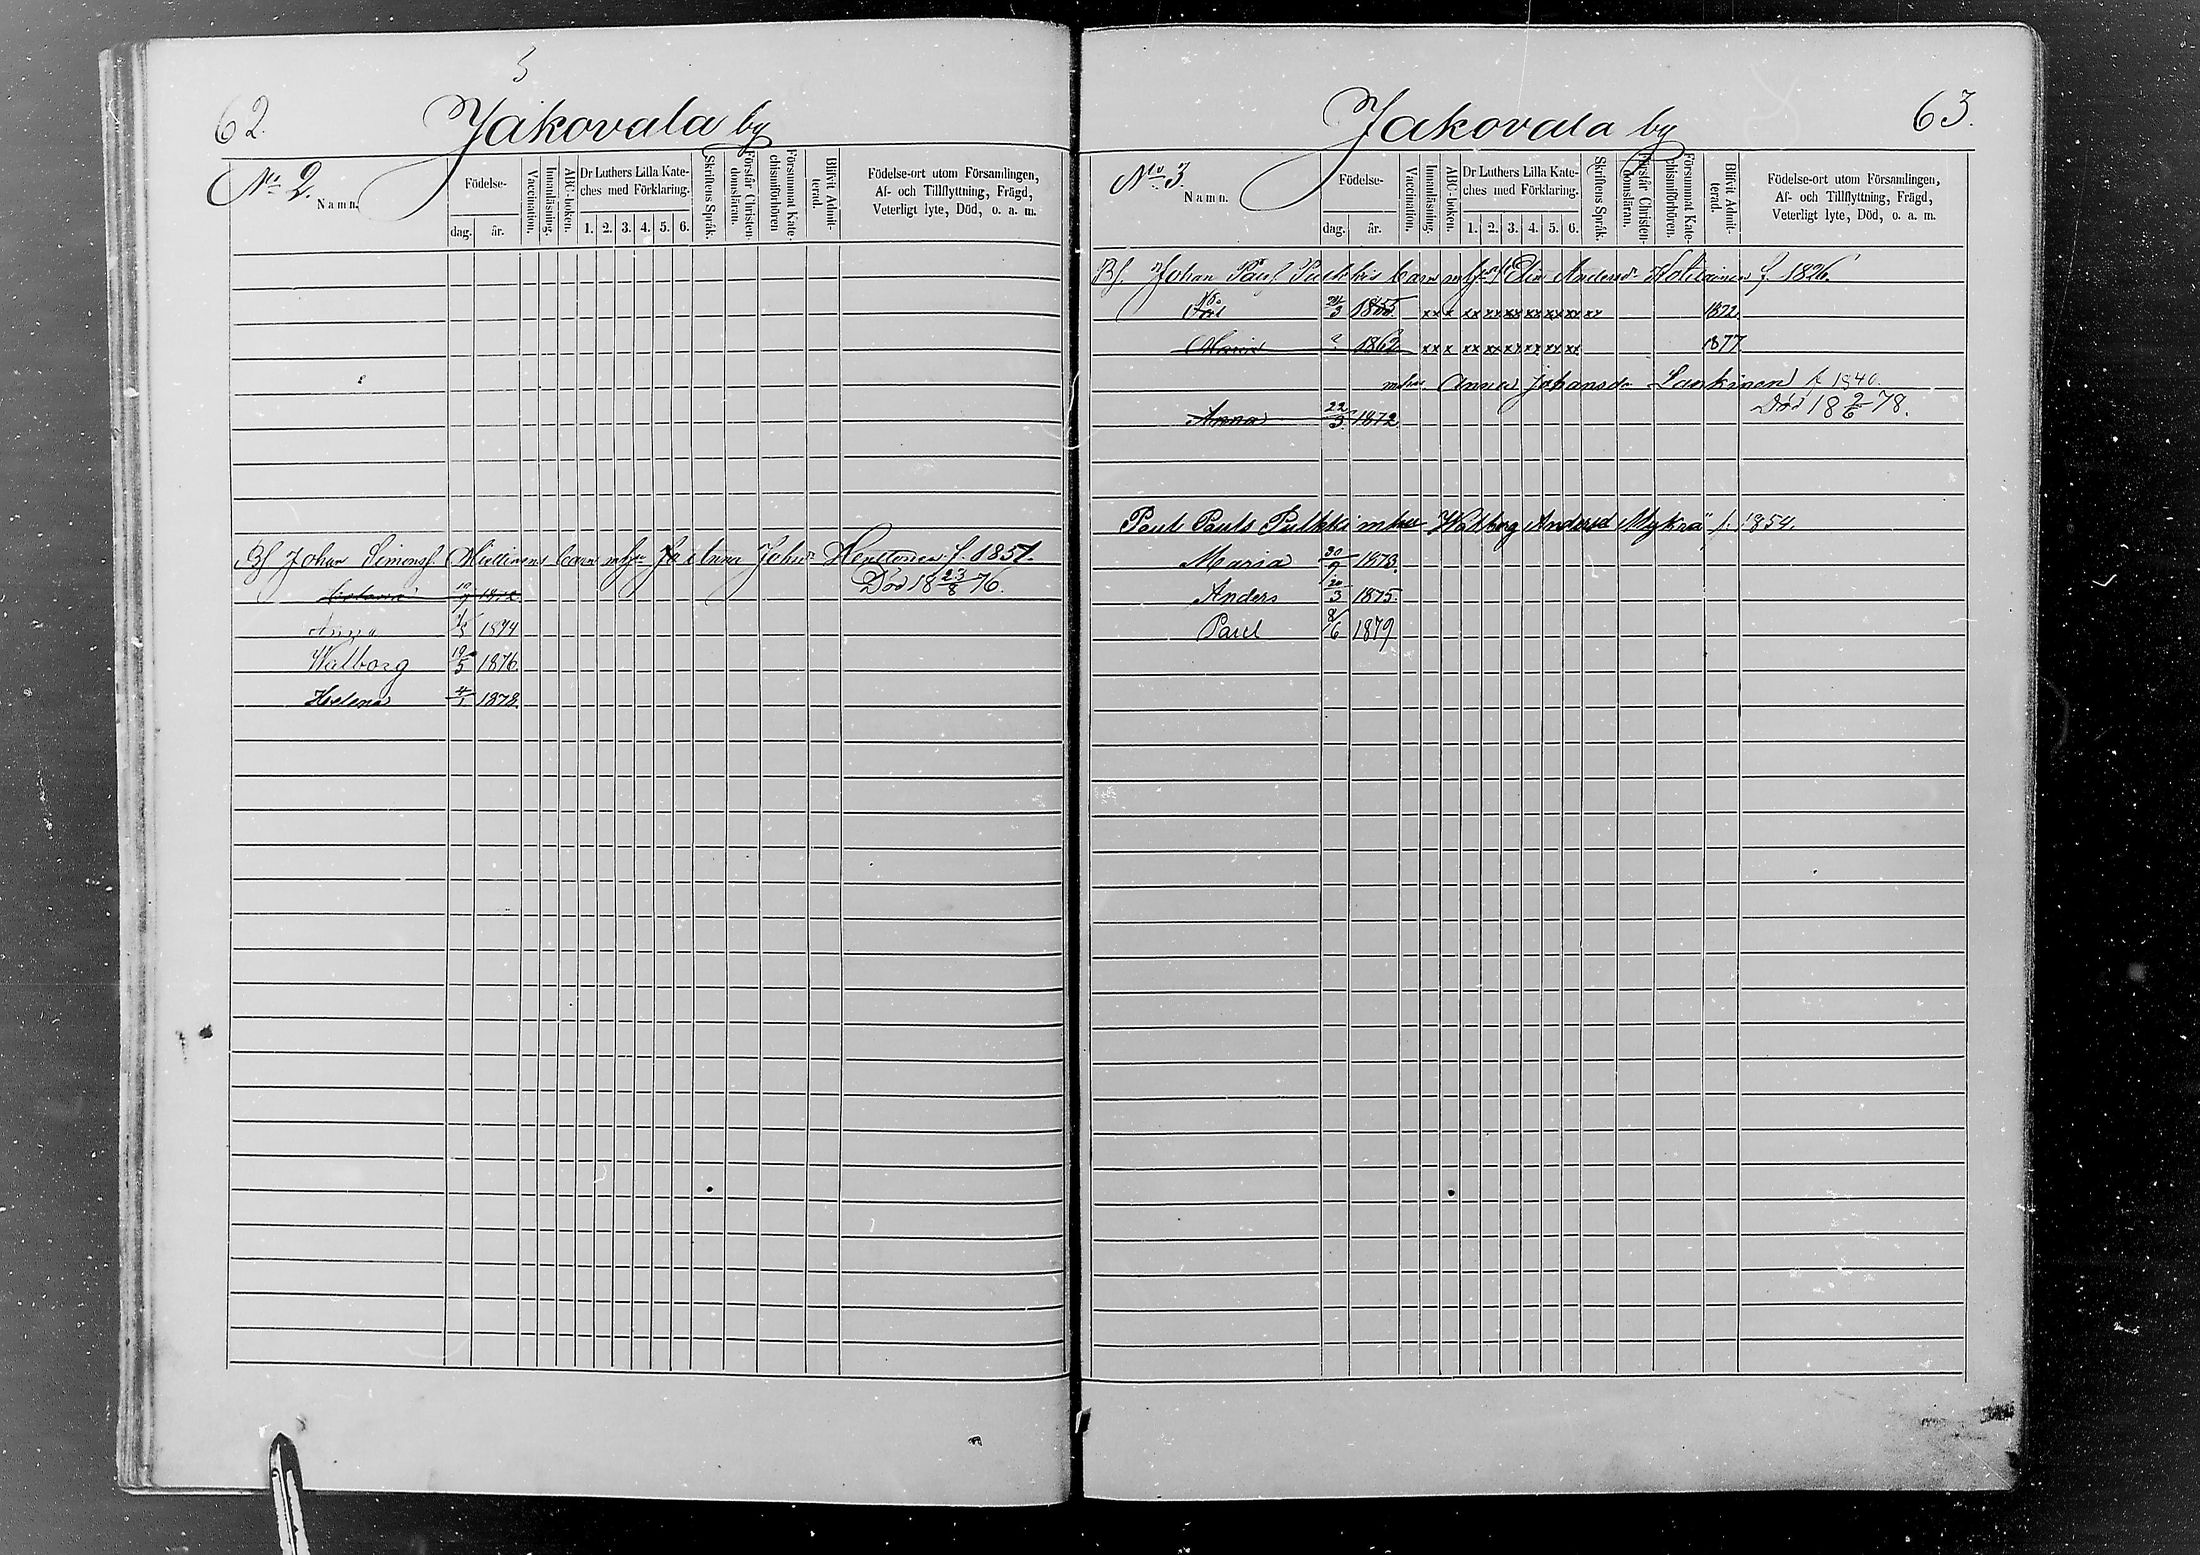 62.
Jakovala by
No 2.
Namn.
Födelse-
dag.
år.
Vaccination.
Innanläsning.
ABC-boken.
Dr Luthers Lilla Kate-
ches med Förklaring.
1. 2. 3. 4. 5. 6.
Skriftens Språk.
Förstår Christen-
domsläran.
Försummat Kate-
chismiförhören
Blifvit Admit-
terad.
Födelse-ort utom Församlingen,
Af- och Tillflyttning, Frägd,
Veterligt lyte, Död, o. a. m.
Johan Simonss. barn Anna Johsdr f. 1851.
Död 18 23/8 76.
Anna 1874
Walborg 19/5 1876
Helena 4/1 1878.
63.
Jakovala by
No 3.
Namn.
Födelse-
dag.
år.
Vaccination.
Innanläsning.
ABC-boken.
Dr Luthers Lilla Kate-
ches med Förklaring.
1. 2. 3. 4. 5. 6.
Skriftens Språk.
Förstår Christen-
domsläran.
Försummat Kate-
chismiförhören.
Blifvit Admit-
terad.
Födelse-ort utom Församlingen,
Af- och Tillflyttning, Frägd,
Veterligt lyte, Död, o. a. m.
Johan Paul barn Elin Andersdr f. 1826.
1855 xx x xx xx xx xx xx xx xx 1872
Maria 1862 xx x xx xx xx xx xx xx 1877
Anna Johansdr Laukinen f. 1840.
Död 18 2/6 78.
Anna 22/3 1872
Paul Pauls Pulkki m hu Walborg Andersd Mykrä f. 1854.
Maria 30/9 1873.
Anders 20/3 1875.
Paul 8/6 1879